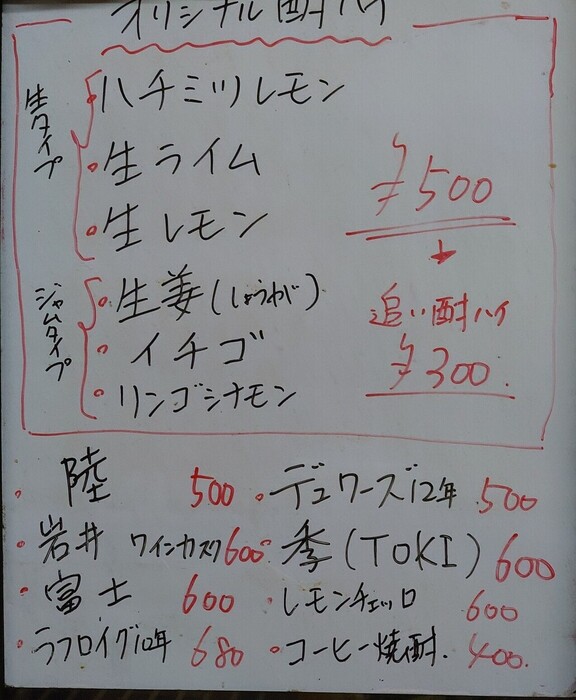 オリジナル酎ハイ
生タイプ
・ハチミツレモン
・生ライム
・生レモン
¥500
追い酎ハイ
¥300.
ジャムタイプ
・生姜(しょうが)
・イチゴ
・リンゴシナモン
・陸 500
・デュワーズ12年 500
・岩井 ワインカスク 600
・季(TOKI) 600
・富士 600
・レモンチェッロ 600
・ラフロイグ10年 680
・コーヒー焼酎. 400.